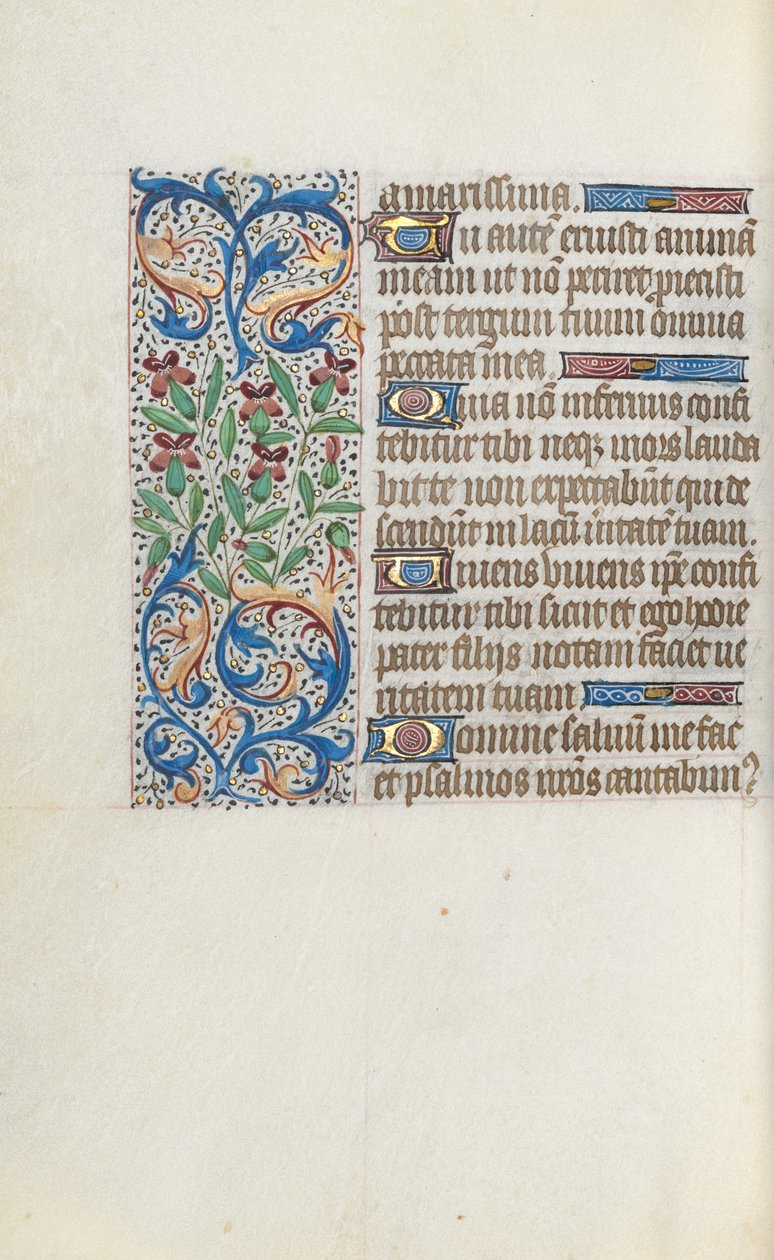 amarissima.
Tu autē eruisti animā
meam ut nō periret proiecisti
post tergum tuum omnia
peccata mea.
Quia nō infernus confi
tebitur tibi neqz mors lauda
bit te non expectabūt qui de
scendūt in lacū ūitatē tuam.
Viuens viuens ip̄e confi
tebitur tibi sicut et ego hodie
pater filijs notam faciet ue
ritatem tuam
Domine saluū me fac
et psalmos nr̄os cantabim